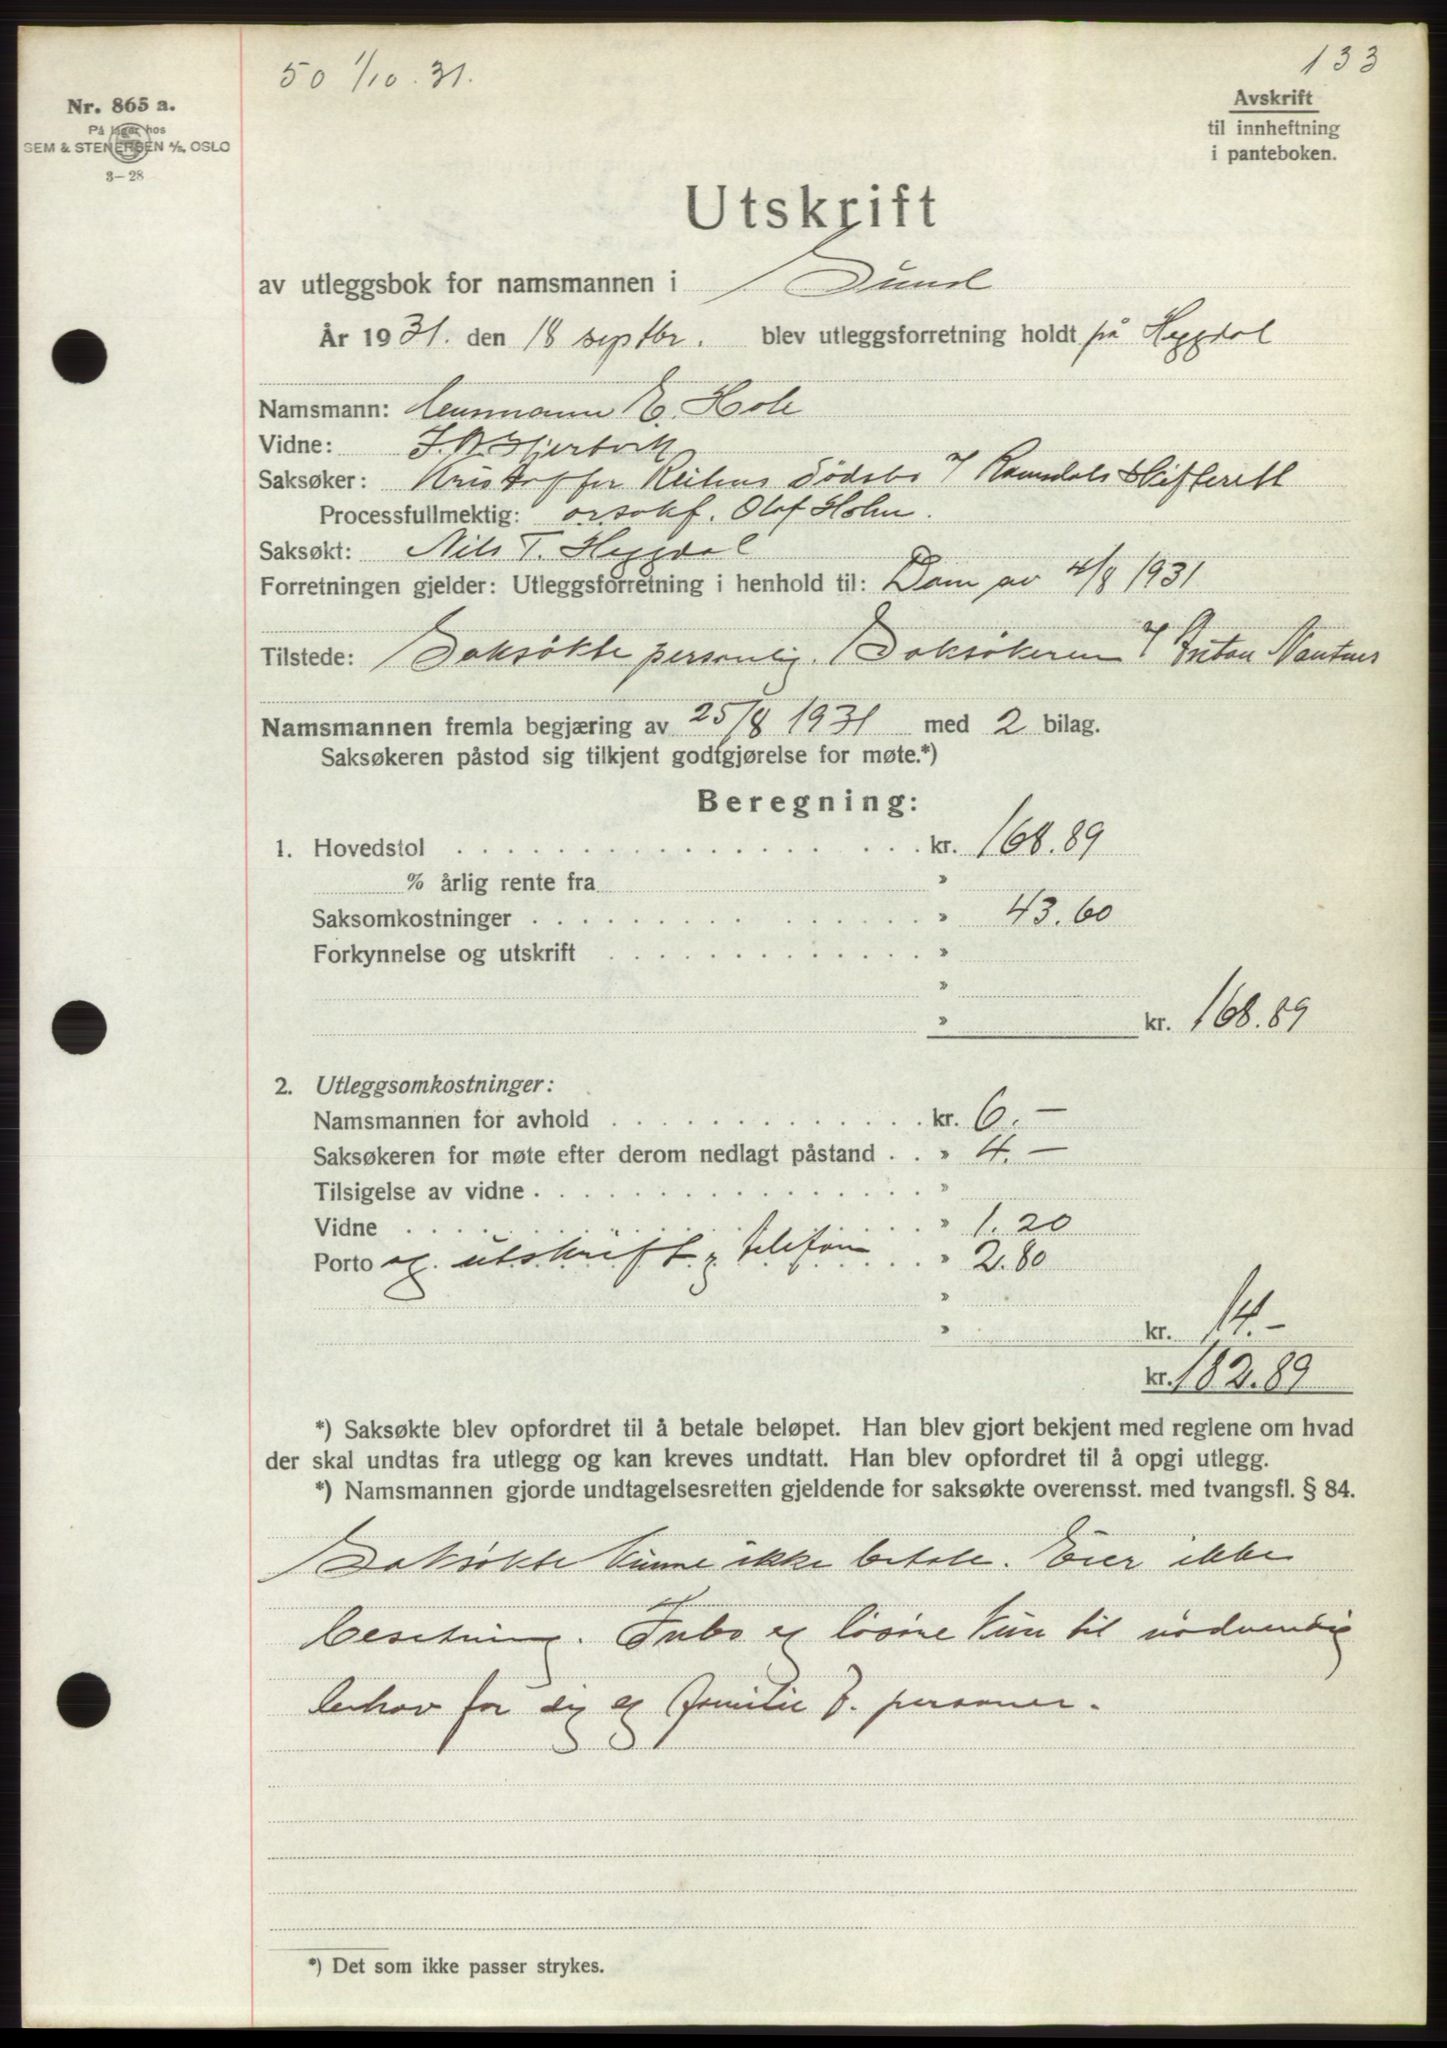 50 1/10. 31.
133
Nr. 865 a.
På lager hos
SEM & STENERSEN A/S, OSLO
3–28
Avskrift
til innheftning
i panteboken.
Utskrift
av utleggsbok for namsmannen i Sund
År 1931. den 18 septbr. blev utleggsforretning holdt på Heggdal
Namsmann: lensmann E. Hole
Vidne:
Saksøker: Kristoffer dødsbo v/ Romsdals skifterett
Processfullmektig: orsakf. Olaf Holm.
Saksøkt: Nils T. Heggdal
Forretningen gjelder: Utleggsforretning i henhold til: Dom av 4/8 1931
Tilstede: Saksøkte personlig. Saksøkeren v/ Anton
Namsmannen fremla begjæring av 25/8 1931 med 2 bilag.
Saksøkeren påstod sig tilkjent godtgjørelse for møte.*)
Beregning:
1. Hovedstol . . . kr. 168.89
% årlig rente fra »
Saksomkostninger . . . » 43.60
Forkynnelse og utskrift . . . »
»
» kr. 168.89
2. Utleggsomkostninger:
Namsmannen for avhold . . . kr. 6.–
Saksøkeren for møte efter derom nedlagt påstand . . » 4.–
Tilsigelse av vidne . . . »
Vidne . . . » 1.20
Porto og utskrift, telefon . . . » 2.80
»
» kr. 14.–
kr. 182.89
*) Saksøkte blev opfordret til å betale beløpet. Han blev gjort bekjent med reglene om hvad
der skal undtas fra utlegg og kan kreves undtatt. Han blev opfordret til å opgi utlegg.
*) Namsmannen gjorde undtagelsesretten gjeldende for saksøkte overensst. med tvangsfl. § 84.
Saksøkte kunne ikke betale. Eier ikke
besetning. Inbo og lösöre kun til nödvendig
behov for sig og familie 7. personer.
*) Det som ikke passer strykes.